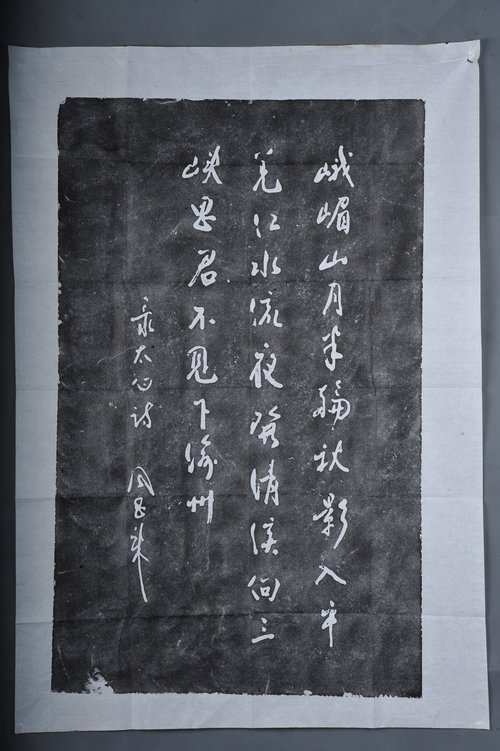 峨嵋山月半輪秋影入平
羌江水流夜發清溪向三
峡思君不见下渝州
录太白诗